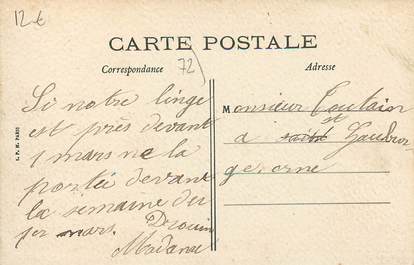 12 €
CARTE POSTALE
Correspondance
72
Adresse
Si notre linge
est près devant
1 mars ne la
portée devant
la semaine du
1er mars. Drouin
Madame
Monsieur Toutain
a st